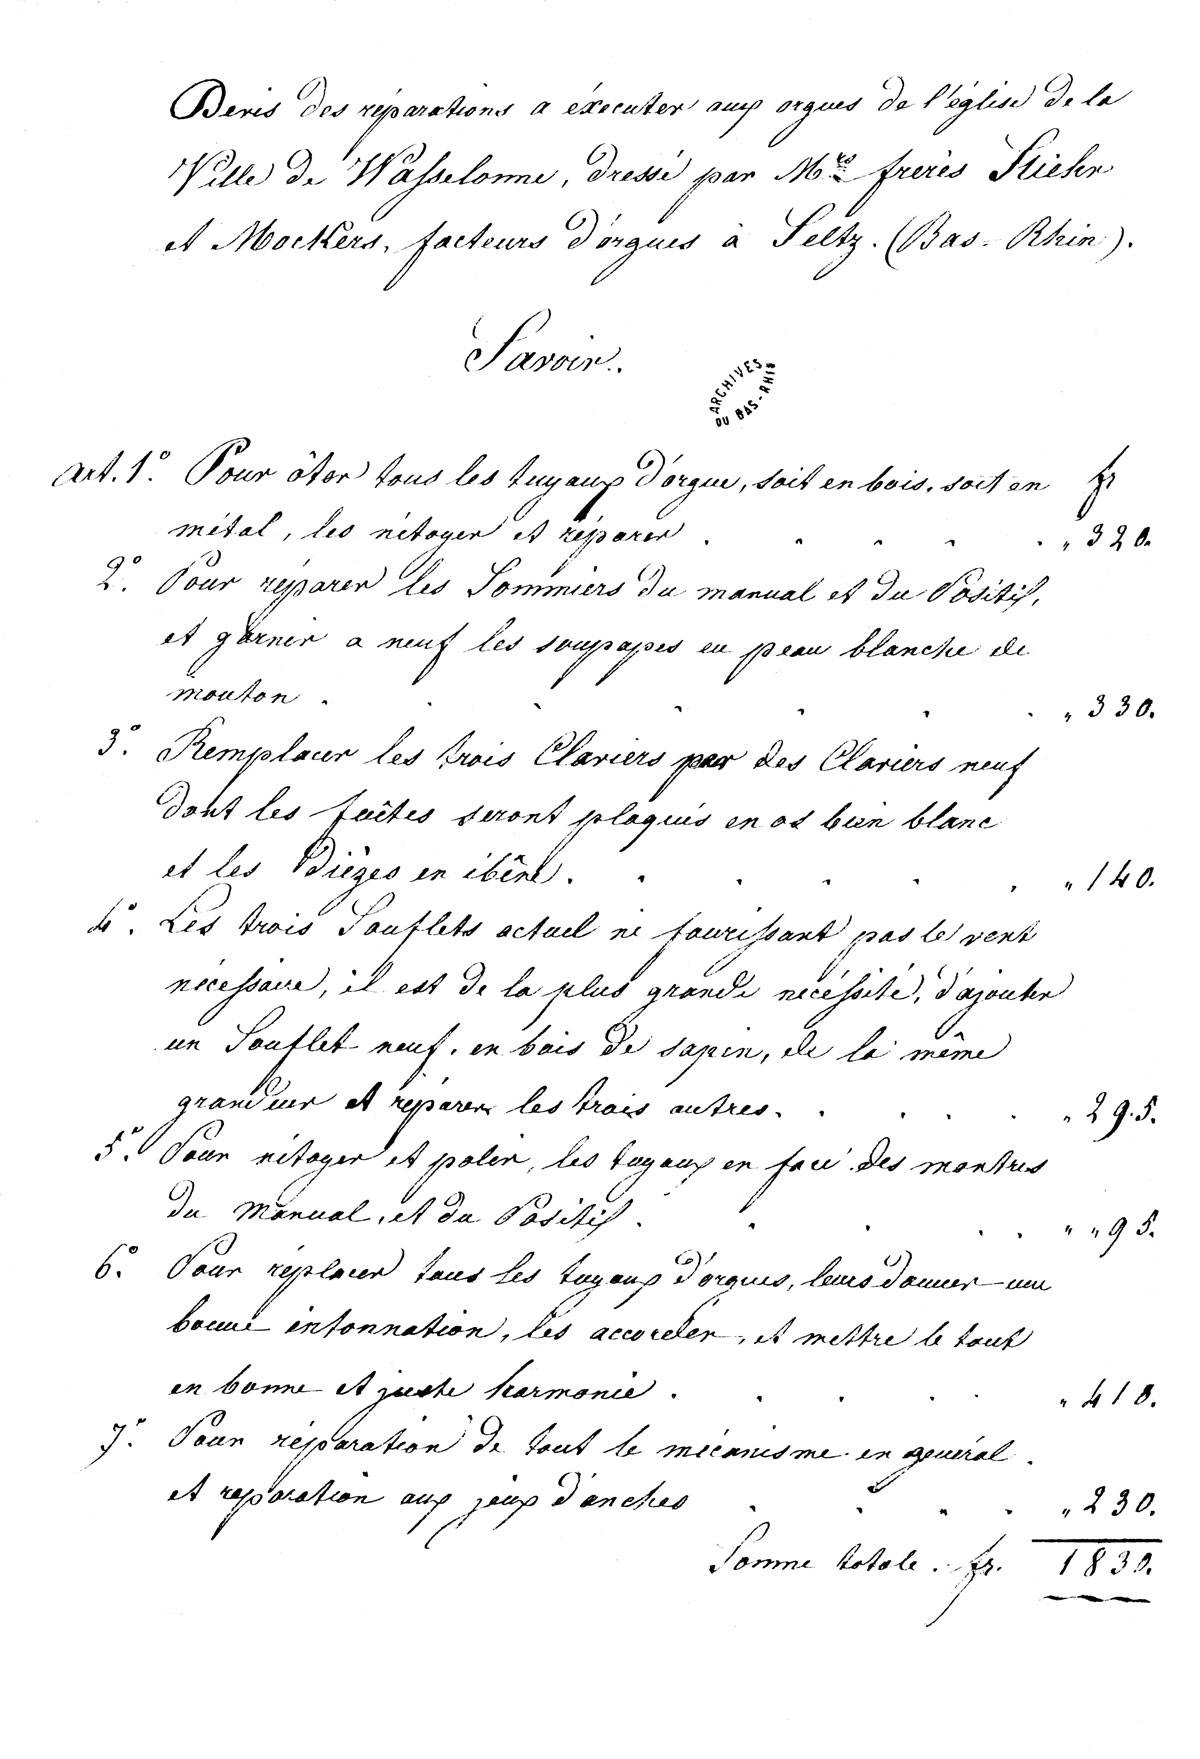 Devis des réparations a éxecuter aux orgues de l'église de la
Ville de Wasselonne, dressé par M.rs fréres Stiehr
et Mockers, facteurs d'orgues à Seltz. (Bas-Rhin).
Savoir.
ARCHIVES
DU BAS-RHIN
Art. 1.° Pour ôter tous les tuyaux d'orgue, soit en bois, soit en fr
métal, les nétoyer et réparer . . . . . " 320.
2.° Pour réparer les Sommiers du manual et du Positif,
et garnir a neuf les soupapes en peau blanche de
mouton . . . . . . . " 330.
3.° Remplacer les trois Claviers par des Claviers neuf
dont les faîtes seront plaqués en os bien blanc
et les Dièzes en ébêne. . . . . . " 140.
4.° Les trois Soufflets actuel ne fourissant pas le vent
nécessaire, il est de la plus grande nécéssité, d'ajouter
un Soufflet neuf, en bois de sapin, de la même
grandeur et réparer les trois autres. . . . . " 295.
5.° Pour nétoyer et polir, les tuyaux en face des montres
du Manual, et du Positif . . . . . " " 95.
6.° Pour réplacer tous les tuyaux d'orgues, leurs donner une
bonne intonnation, les accorder, et mettre le tout
en bonne et juste harmonie . . . . . " 410.
7.° Pour réparation de tout le mécanisme en général .
et reparation aux jeux d'anches . . . . " 230.
Somme totale . fr. 1830.